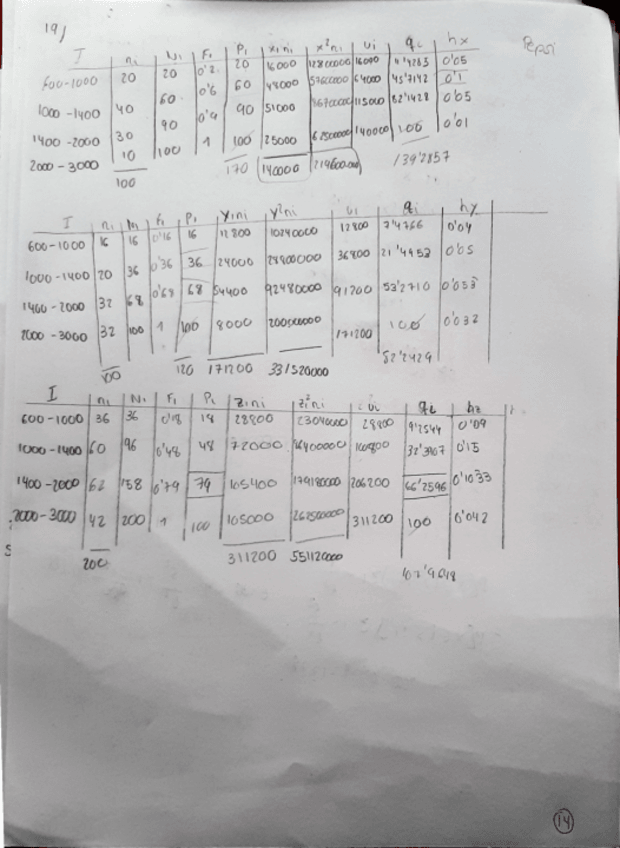 19)
I ni Ni Fi Pi xini x²ni ui qi hx Pepsi
600-1000 20 20 0'2 20 16000 12800000 16000 0'05
1000-1400 40 60 0'6 60 48000 57600000 64000 45'7142 0'1
1400-2000 30 90 0'9 90 51000 86700000 115000 82'1428 0'05
2000-3000 10 100 1 100 25000 62500000 140000 100 0'01
100 170 140000 219600000 139'2857
I ni Ni Fi Pi yini y²ni ui qi hy
600-1000 16 16 0'16 16 12800 10240000 12800 7'4766 0'04
1000-1400 20 36 0'36 36 24000 28800000 36800 21'4953 0'05
1400-2000 32 68 0'68 68 54400 92480000 91200 53'2710 0'053
2000-3000 32 100 1 100 8000 200000000 171200 100 0'032
100 120 171200 331520000 82'2429
I ni Ni Fi Pi zini z²ni ui qi hz
600-1000 36 36 0'18 18 28800 23040000 28800 9'2544 0'09
1000-1400 60 96 0'48 48 72000 86400000 100800 32'3907 0'15
1400-2000 62 158 0'79 79 105400 179180000 206200 66'2596 0'1033
2000-3000 42 200 1 100 105000 262500000 311200 100 0'042
200 311200 551120000
14